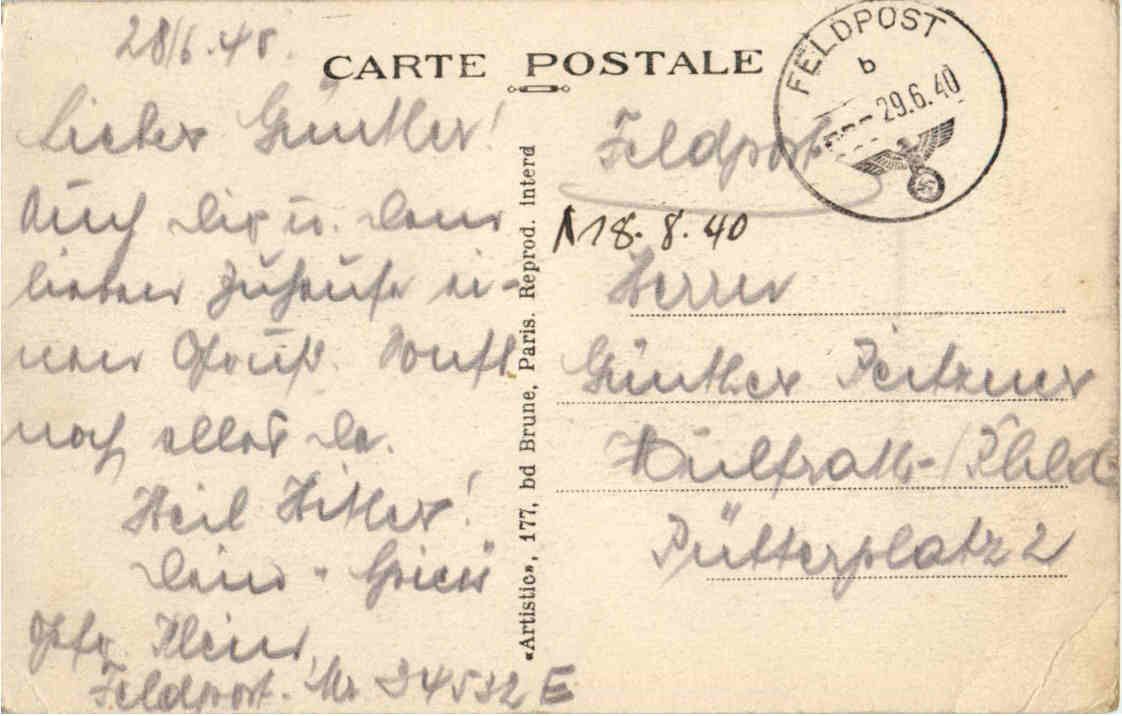 28/6.40.
Lieber Günther!
Auch Dir u. Deinen
lieben Zuhause ei-
nen Gruß.
noch alles da.
Heil Hitler!
Dein
Gefr. Klein
Feldpost. Nr 34532 E
CARTE POSTALE
«Artistic», 177, bd Brune, Paris. Reprod. interd
FELDPOST
b
29.6.40
Feldpost
18. 8. 40
Herrn
Günther
Wülfrath-
2